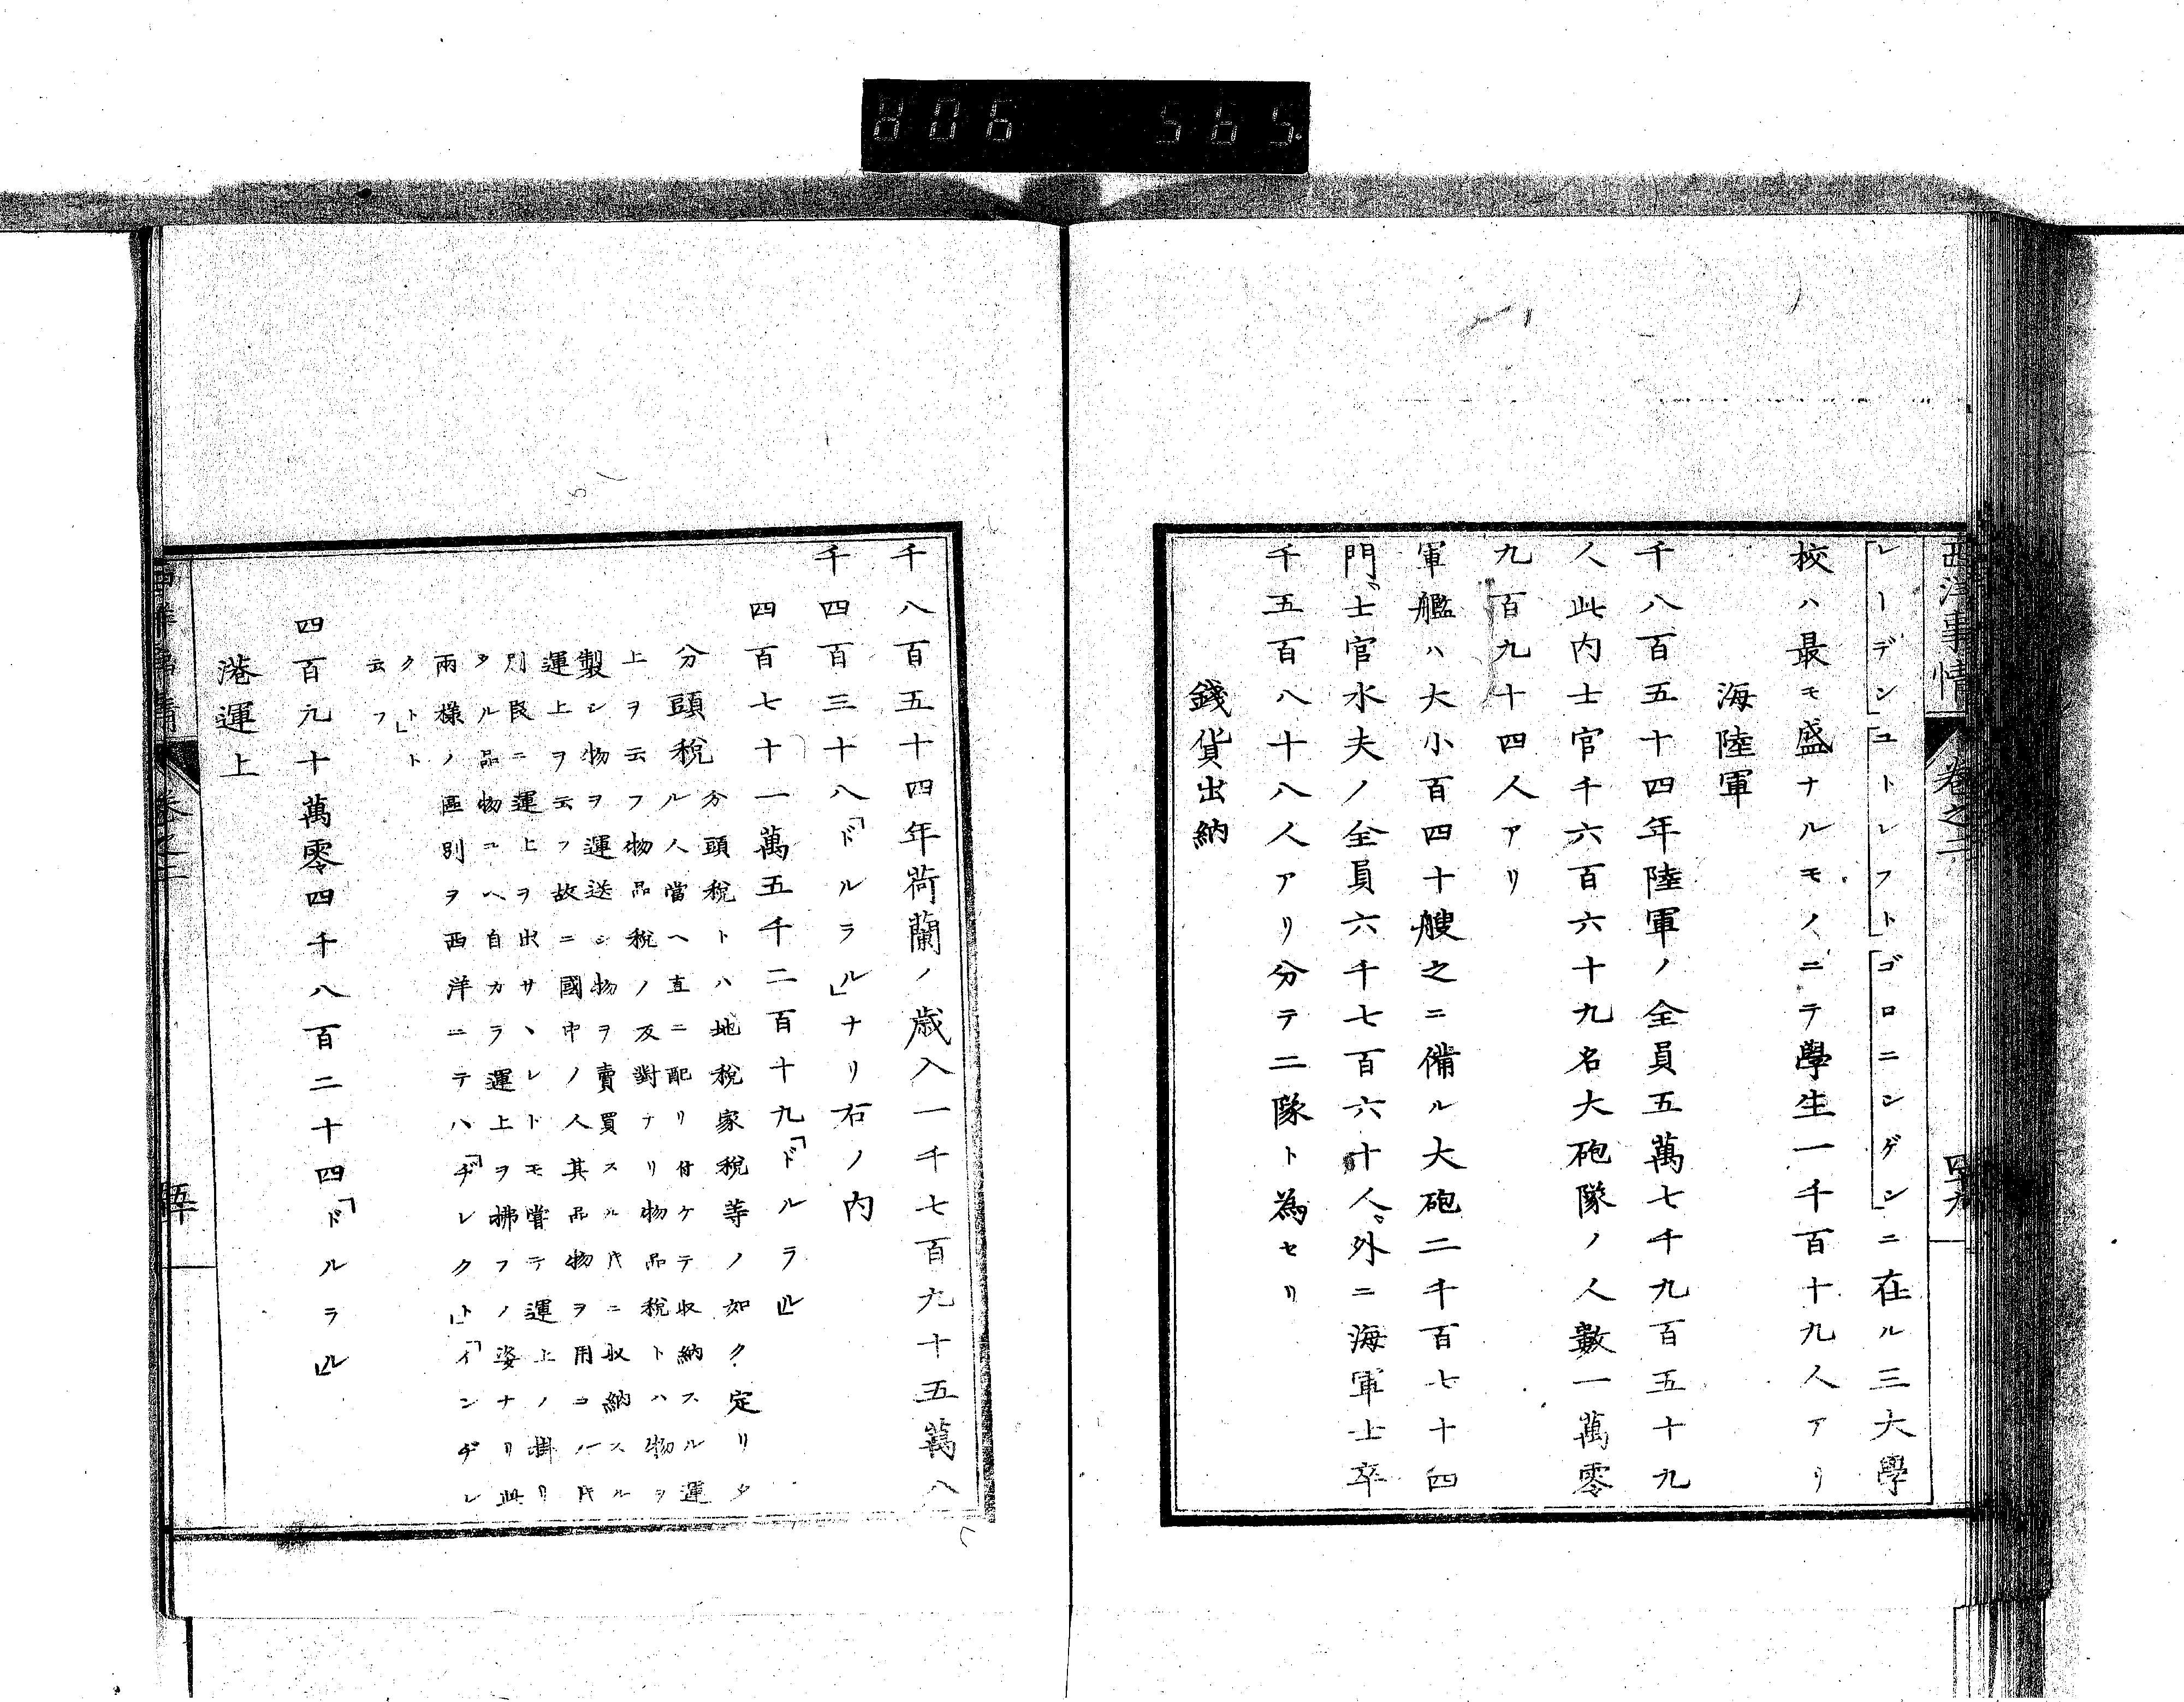 806 565
西洋事情 巻之二 四十九
「レーデン」「ユトレフト」「ゴロニンゲン」ニ在ル三大學
校ハ最モ盛ナルモノニテ學生一千百十九人アリ
海陸軍
千八百五十四年陸軍ノ全員五萬七千九百五十九
人此内士官千六百六十九名大砲隊ノ人數一萬零
九百九十四人アリ
軍艦ハ大小百四十艘之ニ備ル大砲二千百七十四
門士官水夫ノ全員六千七百六十人外ニ海軍士卒
千五百八十八人アリ分テ二隊ト為セリ
錢貨出納
千八百五十四年荷蘭ノ歳入一千七百九十五萬八
千四百三十八「ドルラル」ナリ右ノ内
四百七十一萬五千二百十九「ドルラル」
分頭税
分頭税トハ地税家税等ノ如ク定リタ
ル人當ヘ直ニ配リ付ケテ収納スル運
上ヲ云フ物品税ノ反對ナリ物品税トハ物ヲ
製シ物ヲ運送シ物ヲ賣買スル片ニ収納スル
運上ヲ云フ故ニ國中ノ人其品物ヲ用ユル片ハ
別段ニ運上ヲ出サヽレトモ嘗テ運上ノ掛リ
タル品物ユヘ自カラ運上ヲ拂フノ姿ナリ此
兩様ノ區別ヲ西洋ニテハ「ヂレクト」「インヂレ
クト」ト
云フ
四百九十萬零四千八百二十四「ドルラル」
港運上